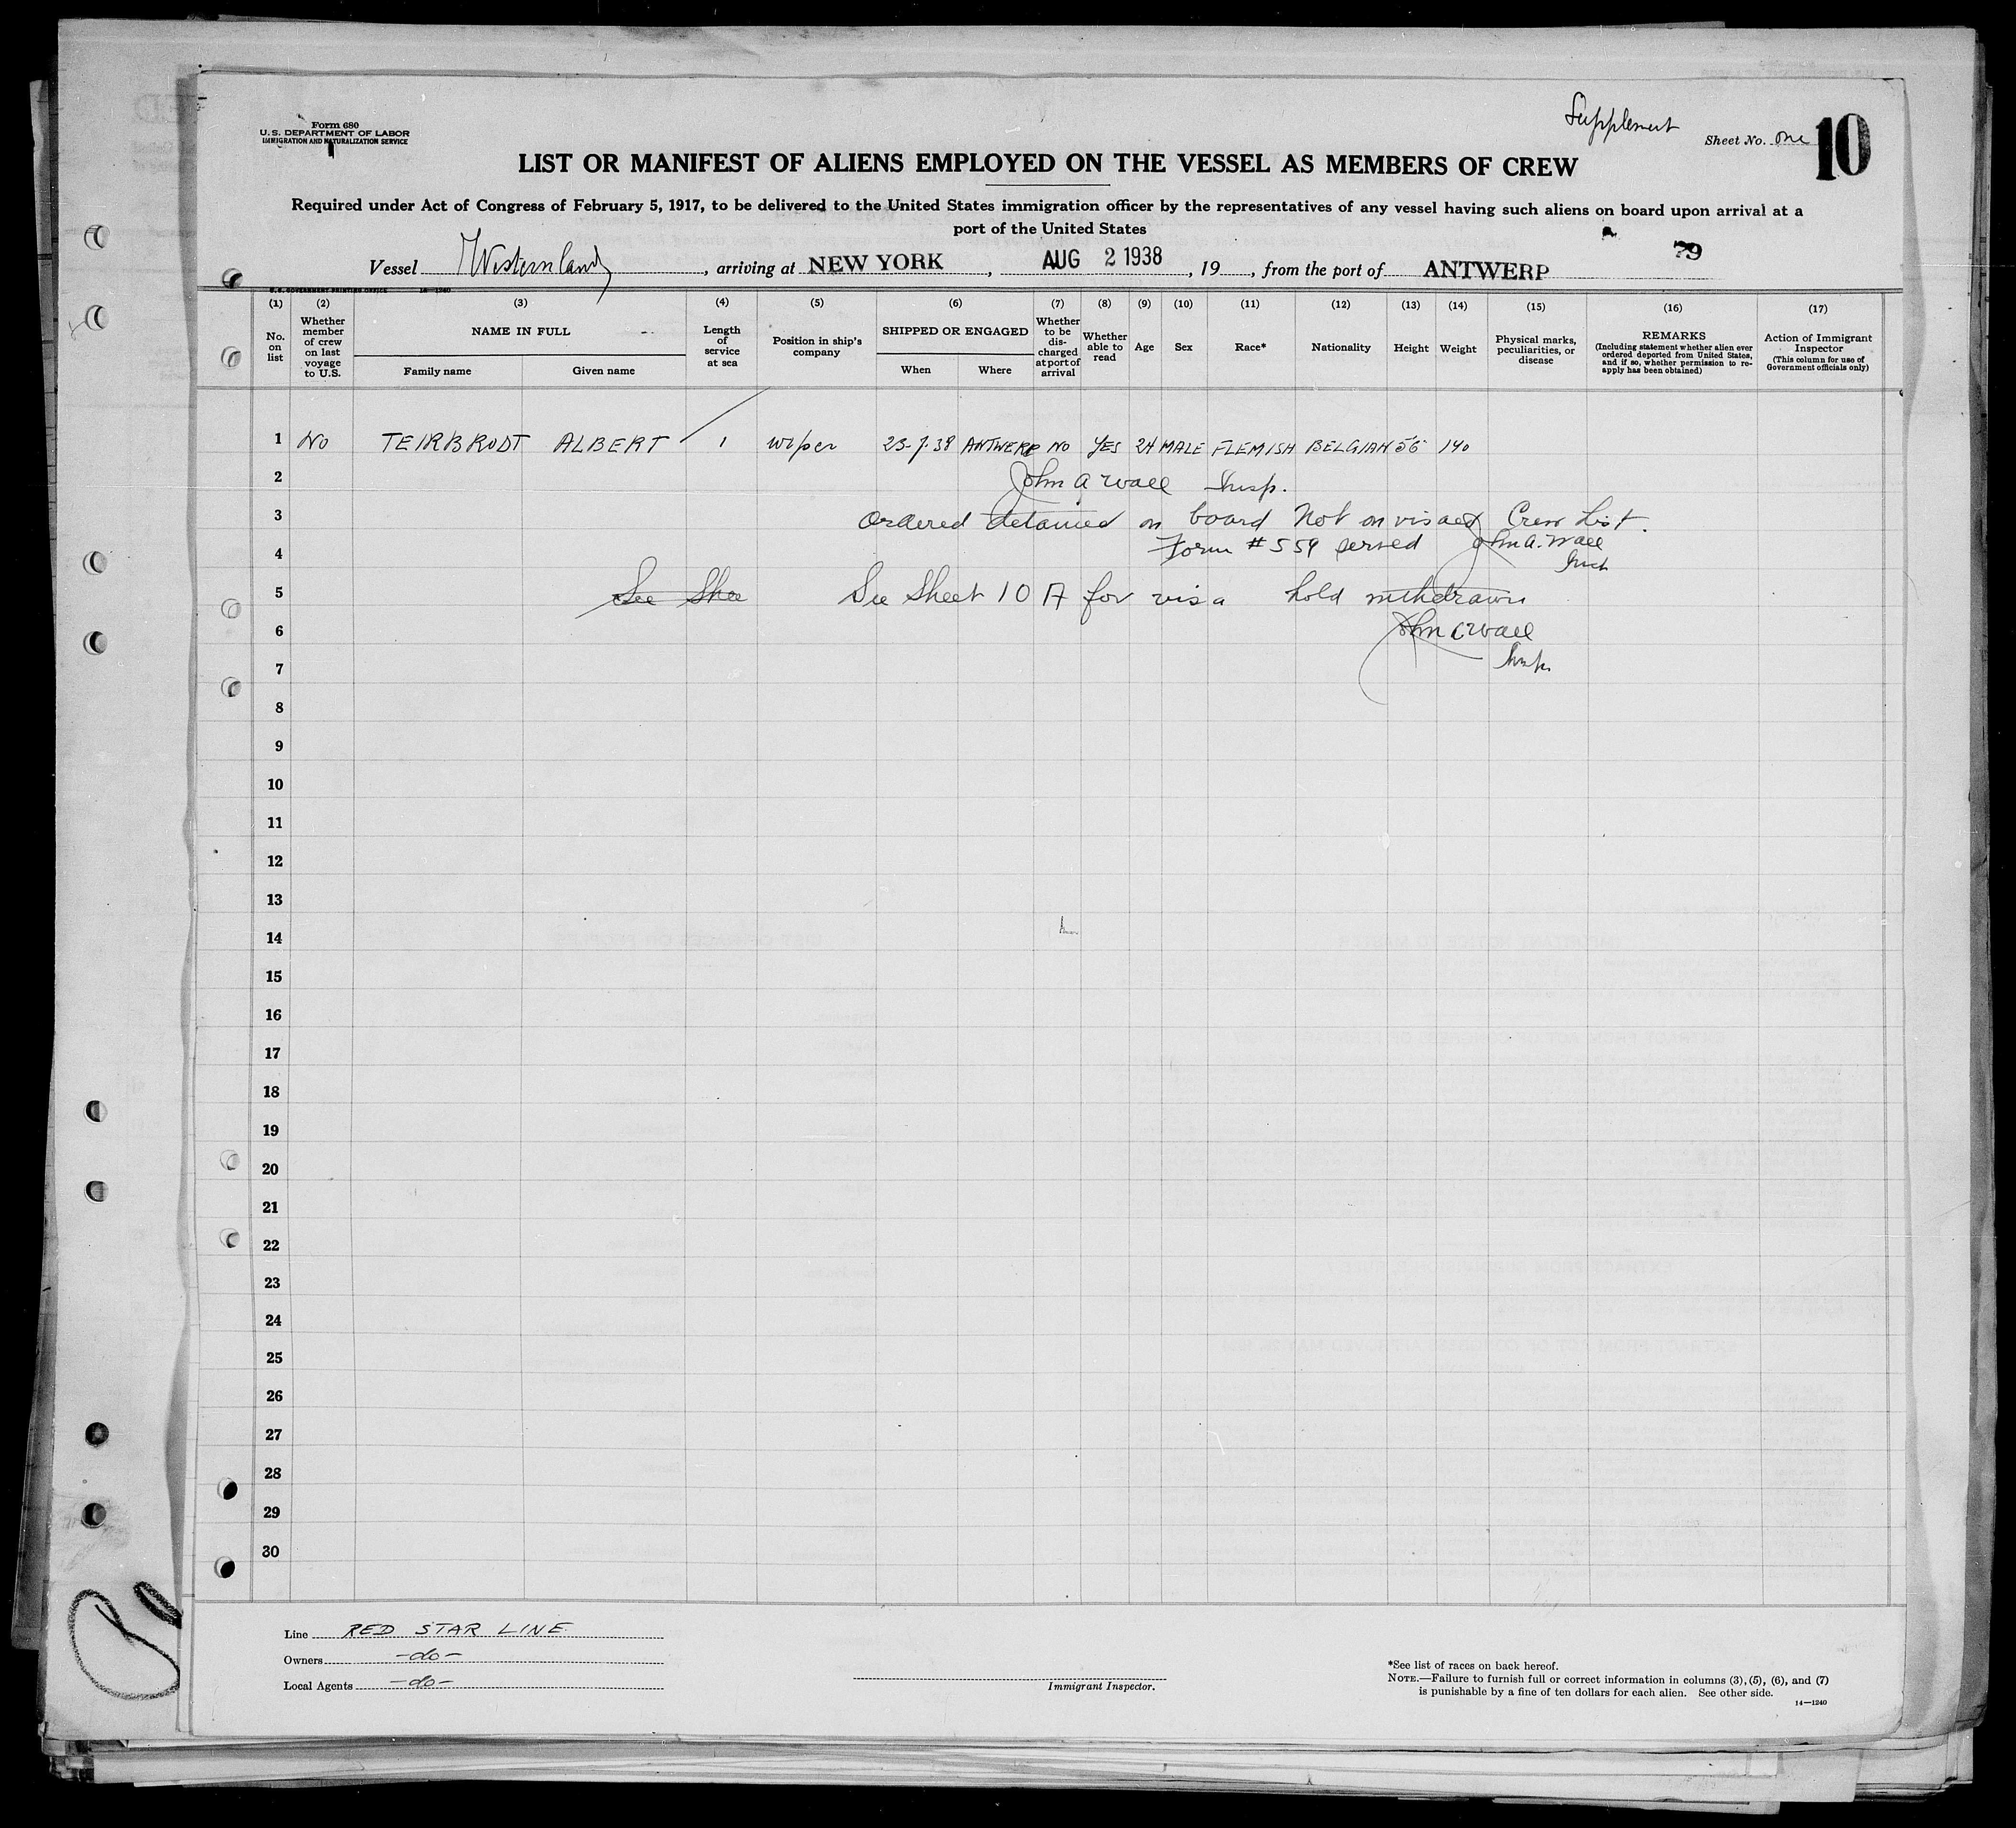 Form 680
U. S. DEPARTMENT OF LABOR
IMMIGRATION AND NATURALIZATION SERVICE
Supplement
Sheet No. one 10
LIST OR MANIFEST OF ALIENS EMPLOYED ON THE VESSEL AS MEMBERS OF CREW
Required under Act of Congress of February 5, 1917, to be delivered to the United States immigration officer by the representatives of any vessel having such aliens on board upon arrival at a
port of the United States
79
Vessel Westernland, arriving at NEW YORK, AUG 2 1938, 19, from the port of ANTWERP
(1) (2) (3) (4) (5) (6) (7) (8) (9) (10) (11) (12) (13) (14) (15) (16) (17)
No. on list
Whether member of crew on last voyage to U.S.
NAME IN FULL
Family name
Given name
Length of service at sea
Position in ship's company
SHIPPED OR ENGAGED
When
Where
Whether to be discharged at port of arrival
Whether able to read
Age
Sex
Race*
Nationality
Height
Weight
Physical marks, peculiarities, or disease
REMARKS
(Including statement whether alien ever ordered deported from United States, and if so, whether permission to reapply has been obtained)
Action of Immigrant Inspector
(This column for use of Government officials only)
1 No TEIRBRODT ALBERT 1 wiper 23-7-38 ANTWERP NO YES 24 MALE FLEMISH BELGIAN 56 140
2 John A Wall Insp.
3 Ordered detained on board Not on visaed Crew List.
4 Form #559 served John A. Wall
Insp
5 See Shee See Sheet 10 A for visa hold withdrawn
6 John A Wall
7 Insp.
8
9
10
11
12
13
14
15
16
17
18
19
20
21
22
23
24
25
26
27
28
29
30
Line RED STAR LINE
Owners -do-
Local Agents -do-
Immigrant Inspector.
*See list of races on back hereof.
NOTE.—Failure to furnish full or correct information in columns (3), (5), (6), and (7)
is punishable by a fine of ten dollars for each alien. See other side.
14—1240